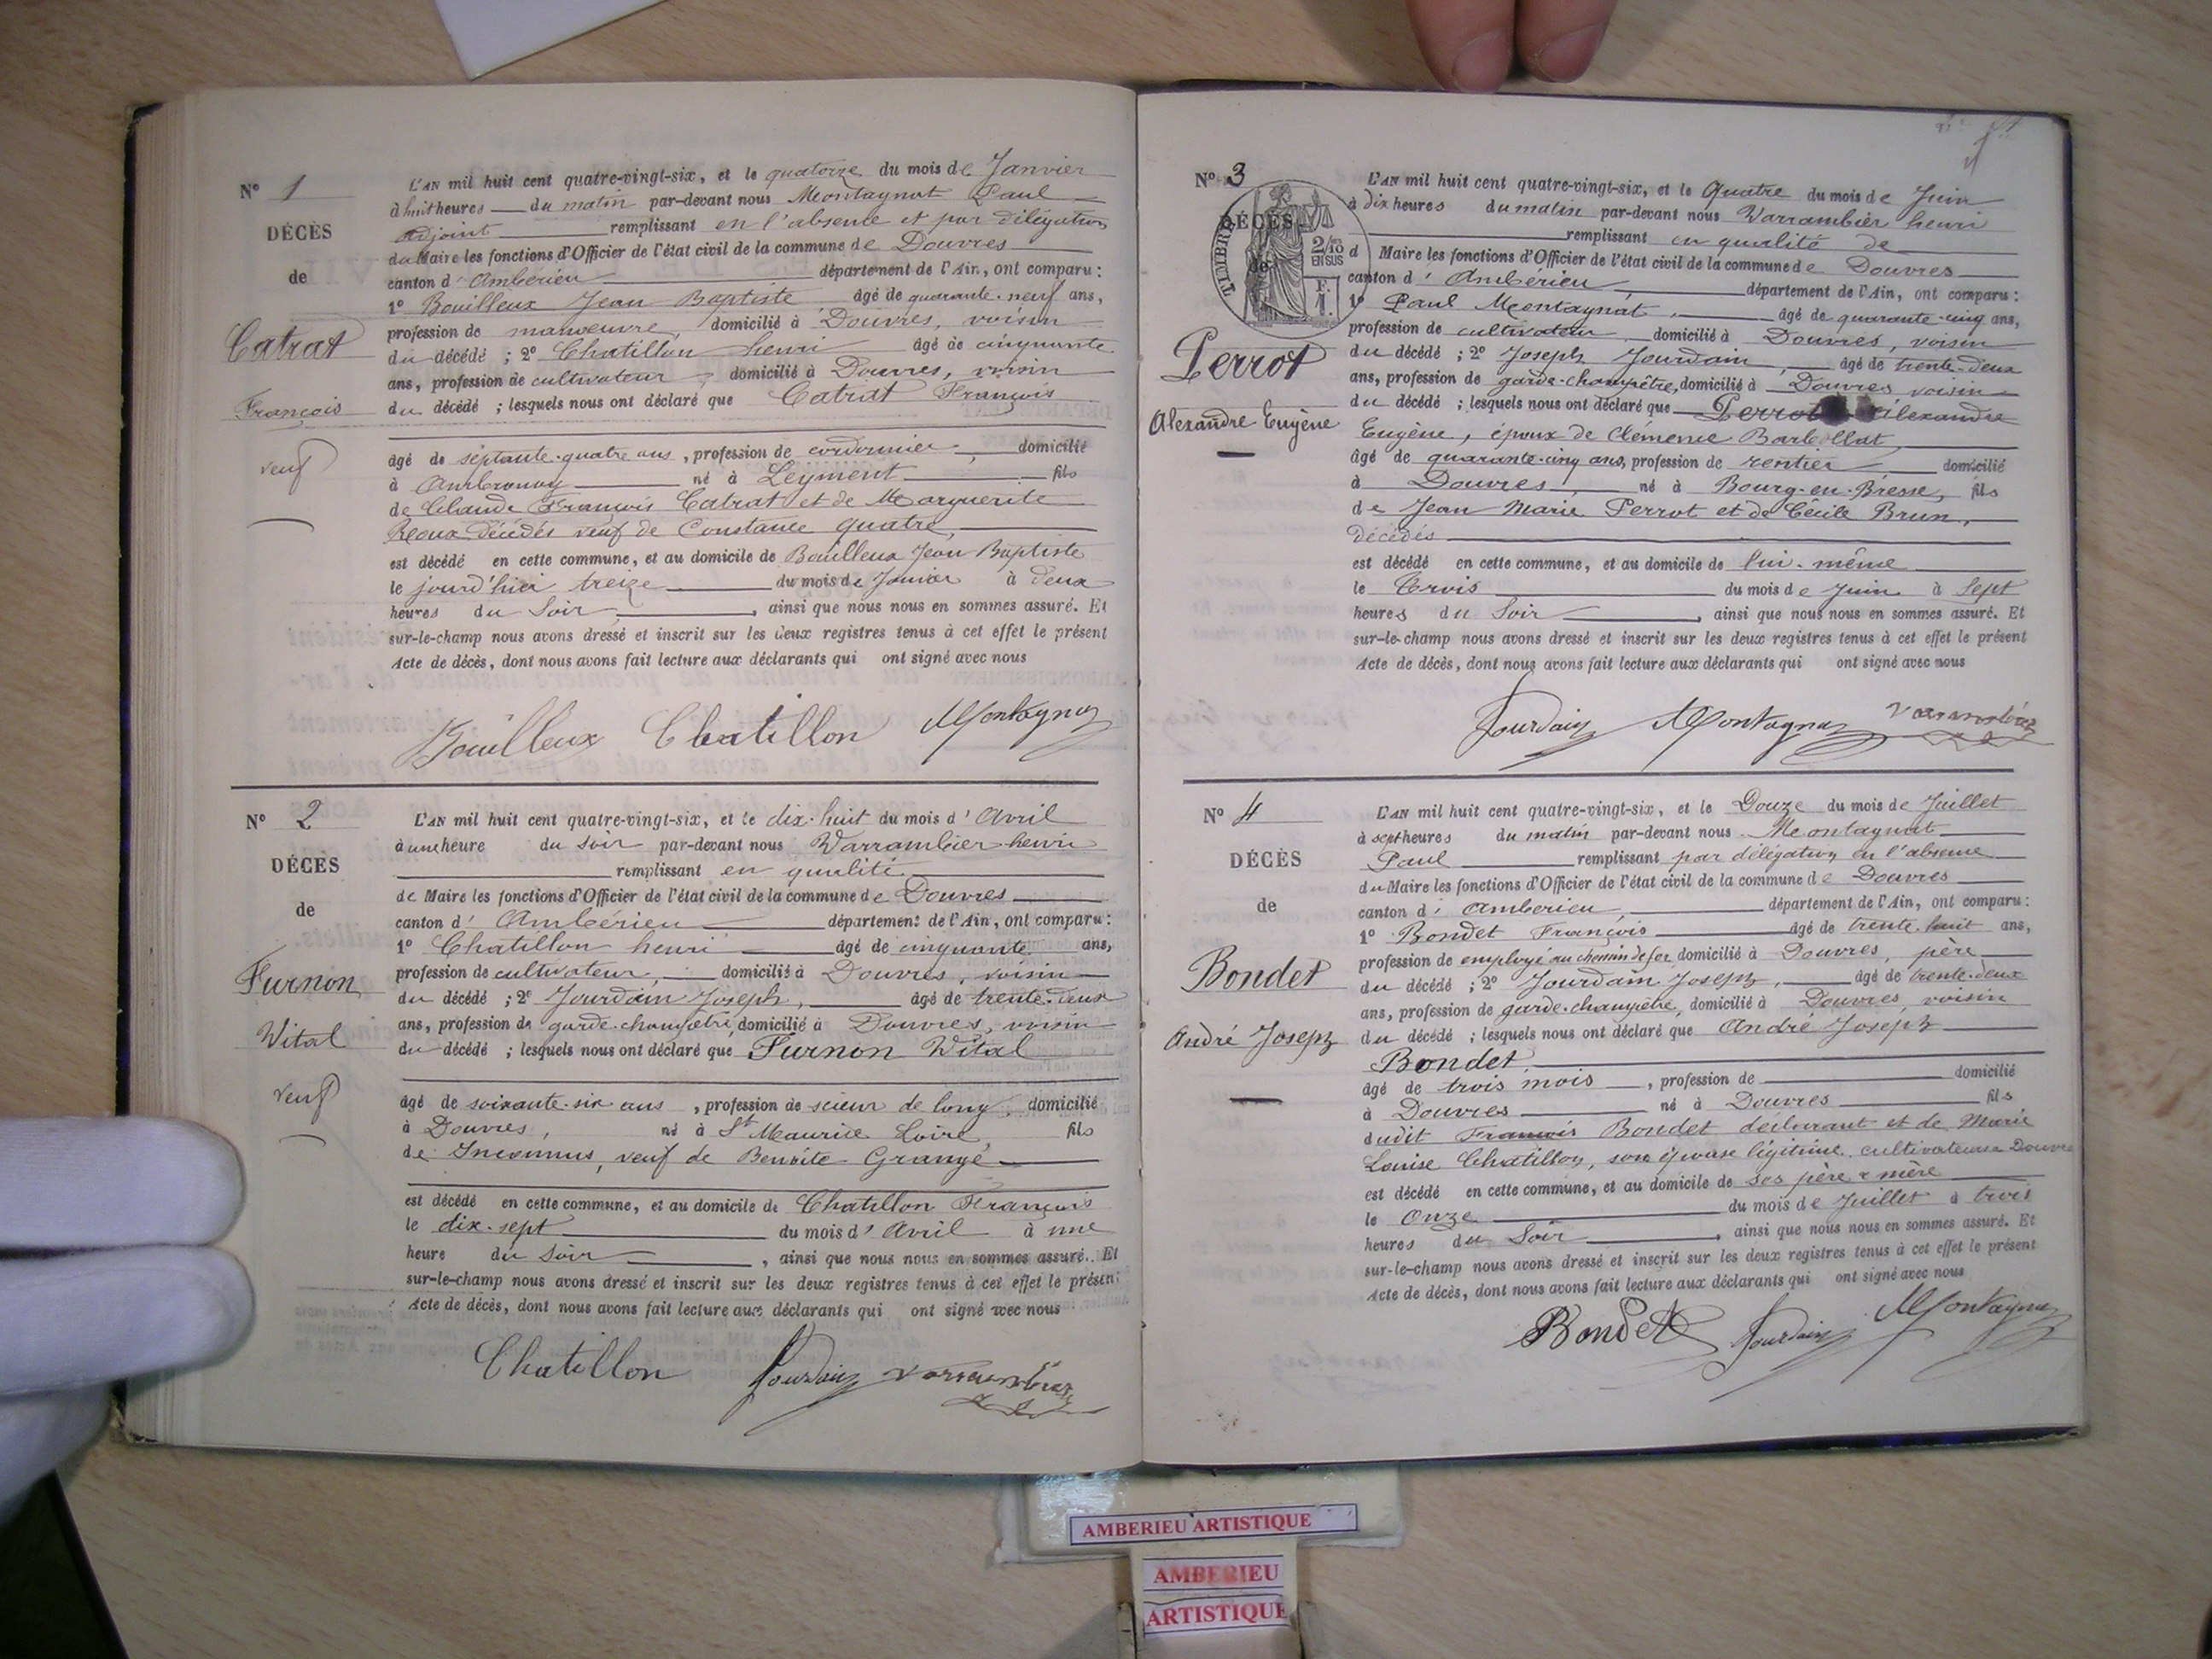 N° 1
DÉCÈS
de
Catrat
François
veuf
L'AN mil huit cent quatre-vingt-six, et le quatorze du mois de Janvier
à huit heures du matin par-devant nous Montagnat Paul
adjoint remplissant en l'absence et par délégation
du Maire les fonctions d'Officier de l'état civil de la commune de Douvres
canton d'Ambérieu département de l'Ain, ont comparu :
1° Bouilleux Jean Baptiste âgé de quarante-neuf ans,
profession de manoeuvre, domicilié à Douvres, voisin
du décédé ; 2° Chatillon henri âgé de cinquante
ans, profession de cultivateur, domicilié à Douvres, voisin
du décédé ; lesquels nous ont déclaré que Catrat François
âgé de septante-quatre ans, profession de cordonnier, domicilié
à Ambronay né à Leyment fils
de Claude François Catrat et de Marguerite
décédés veuf de Constance Quatre,
est décédé en cette commune, et au domicile de Bouilleux Jean Baptiste
le jourd'hier treize du mois de Janvier à deux
heures du Soir, ainsi que nous nous en sommes assuré. Et
sur-le-champ nous avons dressé et inscrit sur les deux registres tenus à cet effet le présent
Acte de décès, dont nous avons fait lecture aux déclarants qui ont signé avec nous
Bouilleux Chatillon Montagnat
N° 2
DÉCÈS
de
Furnon
Vital
veuf
L'AN mil huit cent quatre-vingt-six, et le dix-huit du mois d'Avril
à une heure du soir par-devant nous Varrambier henri
remplissant en qualité
de Maire les fonctions d'Officier de l'état civil de la commune de Douvres
canton d'Ambérieu département de l'Ain, ont comparu :
1° Chatillon henri âgé de cinquante ans,
profession de cultivateur, domicilié à Douvres, voisin
du décédé ; 2° Jourdain Joseph, âgé de trente-deux
ans, profession de garde-champêtre, domicilié à Douvres, voisin
du décédé ; lesquels nous ont déclaré que Furnon Vital
âgé de soixante-six ans, profession de scieur de long, domicilié
à Douvres, né à St Maurice Loire, fils
de Inconnus, veuf de Benoite Grangé
est décédé en cette commune, et au domicile de Chatillon François
le dix-sept du mois d'Avril à une
heure du Soir, ainsi que nous nous en sommes assuré. Et
sur-le-champ nous avons dressé et inscrit sur les deux registres tenus à cet effet le présent
Acte de décès, dont nous avons fait lecture aux déclarants qui ont signé avec nous
Chatillon Jourdain Varrambier
N° 3
DÉCÈS
de
TIMBRE
2/10 EN SUS
F. 1.
Perrot
Alexandre Eugène
L'AN mil huit cent quatre-vingt-six, et le Quatre du mois de Juin
à dix heures du matin par-devant nous Varrambier henri
remplissant en qualité de
d Maire les fonctions d'Officier de l'état civil de la commune de Douvres
canton d'Ambérieu, département de l'Ain, ont comparu :
1° Paul Montagnat, âgé de quarante-cinq ans,
profession de cultivateur, domicilié à Douvres, voisin
du décédé ; 2° Joseph Jourdain, âgé de trente-deux
ans, profession de garde-champêtre, domicilié à Douvres voisin
du décédé ; lesquels nous ont déclaré que Perrot Alexandre
Eugène, époux de Clémence Barbollat,
âgé de quarante-cinq ans, profession de rentier domicilié
à Douvres né à Bourg-en-Bresse, fils
de Jean Marie Perrot et de Cécile Brun,
décédés
est décédé en cette commune, et au domicile de lui-même
le Trois du mois de Juin à Sept
heures du Soir, ainsi que nous nous en sommes assuré. Et
sur-le-champ nous avons dressé et inscrit sur les deux registres tenus à cet effet le présent
Acte de décès, dont nous avons fait lecture aux déclarants qui ont signé avec nous
Jourdain Montagnat Varrambier
N° 4
DÉCÈS
de
Bondet
André Joseph
L'AN mil huit cent quatre-vingt-six, et le Douze du mois de Juillet
à sept heures du matin par-devant nous Montagnat
Paul remplissant par délégation en l'absence
du Maire les fonctions d'Officier de l'état civil de la commune de Douvres
canton d'Amberieu, département de l'Ain, ont comparu :
1° Bondet François âgé de trente-huit ans,
profession de employé au chemin de fer domicilié à Douvres, père
du décédé ; 2° Jourdain Joseph, âgé de trente-deux
ans, profession de garde-champêtre, domicilié à Douvres, voisin
du décédé ; lesquels nous ont déclaré que André Joseph
Bondet,
âgé de trois mois, profession de domicilié
à Douvres né à Douvres fils
dudit François Bondet déclarant et de Marie
Louise Chatillon, son épouse légitime, cultivateurs à Douvres
est décédé en cette commune, et au domicile de ses père & mère
le Onze du mois de Juillet à trois
heures du Soir, ainsi que nous nous en sommes assuré. Et
sur-le-champ nous avons dressé et inscrit sur les deux registres tenus à cet effet le présent
Acte de décès, dont nous avons fait lecture aux déclarants qui ont signé avec nous
Bondet Jourdain Montagnat
AMBERIEU ARTISTIQUE
AMBERIEU
ARTISTIQUE